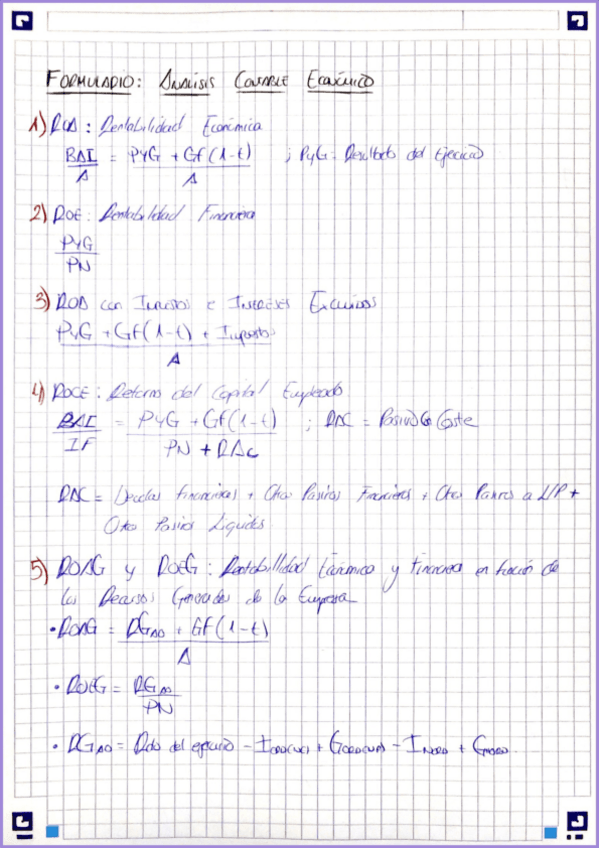 FORMULARIO: ANÁLISIS CONTABLE ECONÓMICO
1) ROA: Rentabilidad Económica
BAI / A = PYG + Gf(1-t) / A ; PyG: Resultado del Ejercicio
2) ROE: Rentabilidad Financiera
PYG / PN
3) ROA con Impuestos e Intereses Excluidos
PYG + Gf(1-t) + Impuestos / A
4) ROCE: Retorno del Capital Empleado
BAI / IF = PYG + Gf(1-t) / PN + RAC ; RAC = Pasivo Coste
RAC = Deudas financieras + Otros Pasivos Financieros + Otros Pasivos a L/P +
Otro Pasivo Líquidos
5) ROAG y ROEG: Rentabilidad Económica y Financiera en función de
los Recursos Generados de la Empresa
• ROAG = RGAO + Gf(1-t) / A
• ROEG = RGAO / PN
• RGAO = Rdo del ejercicio - I + G - I + G